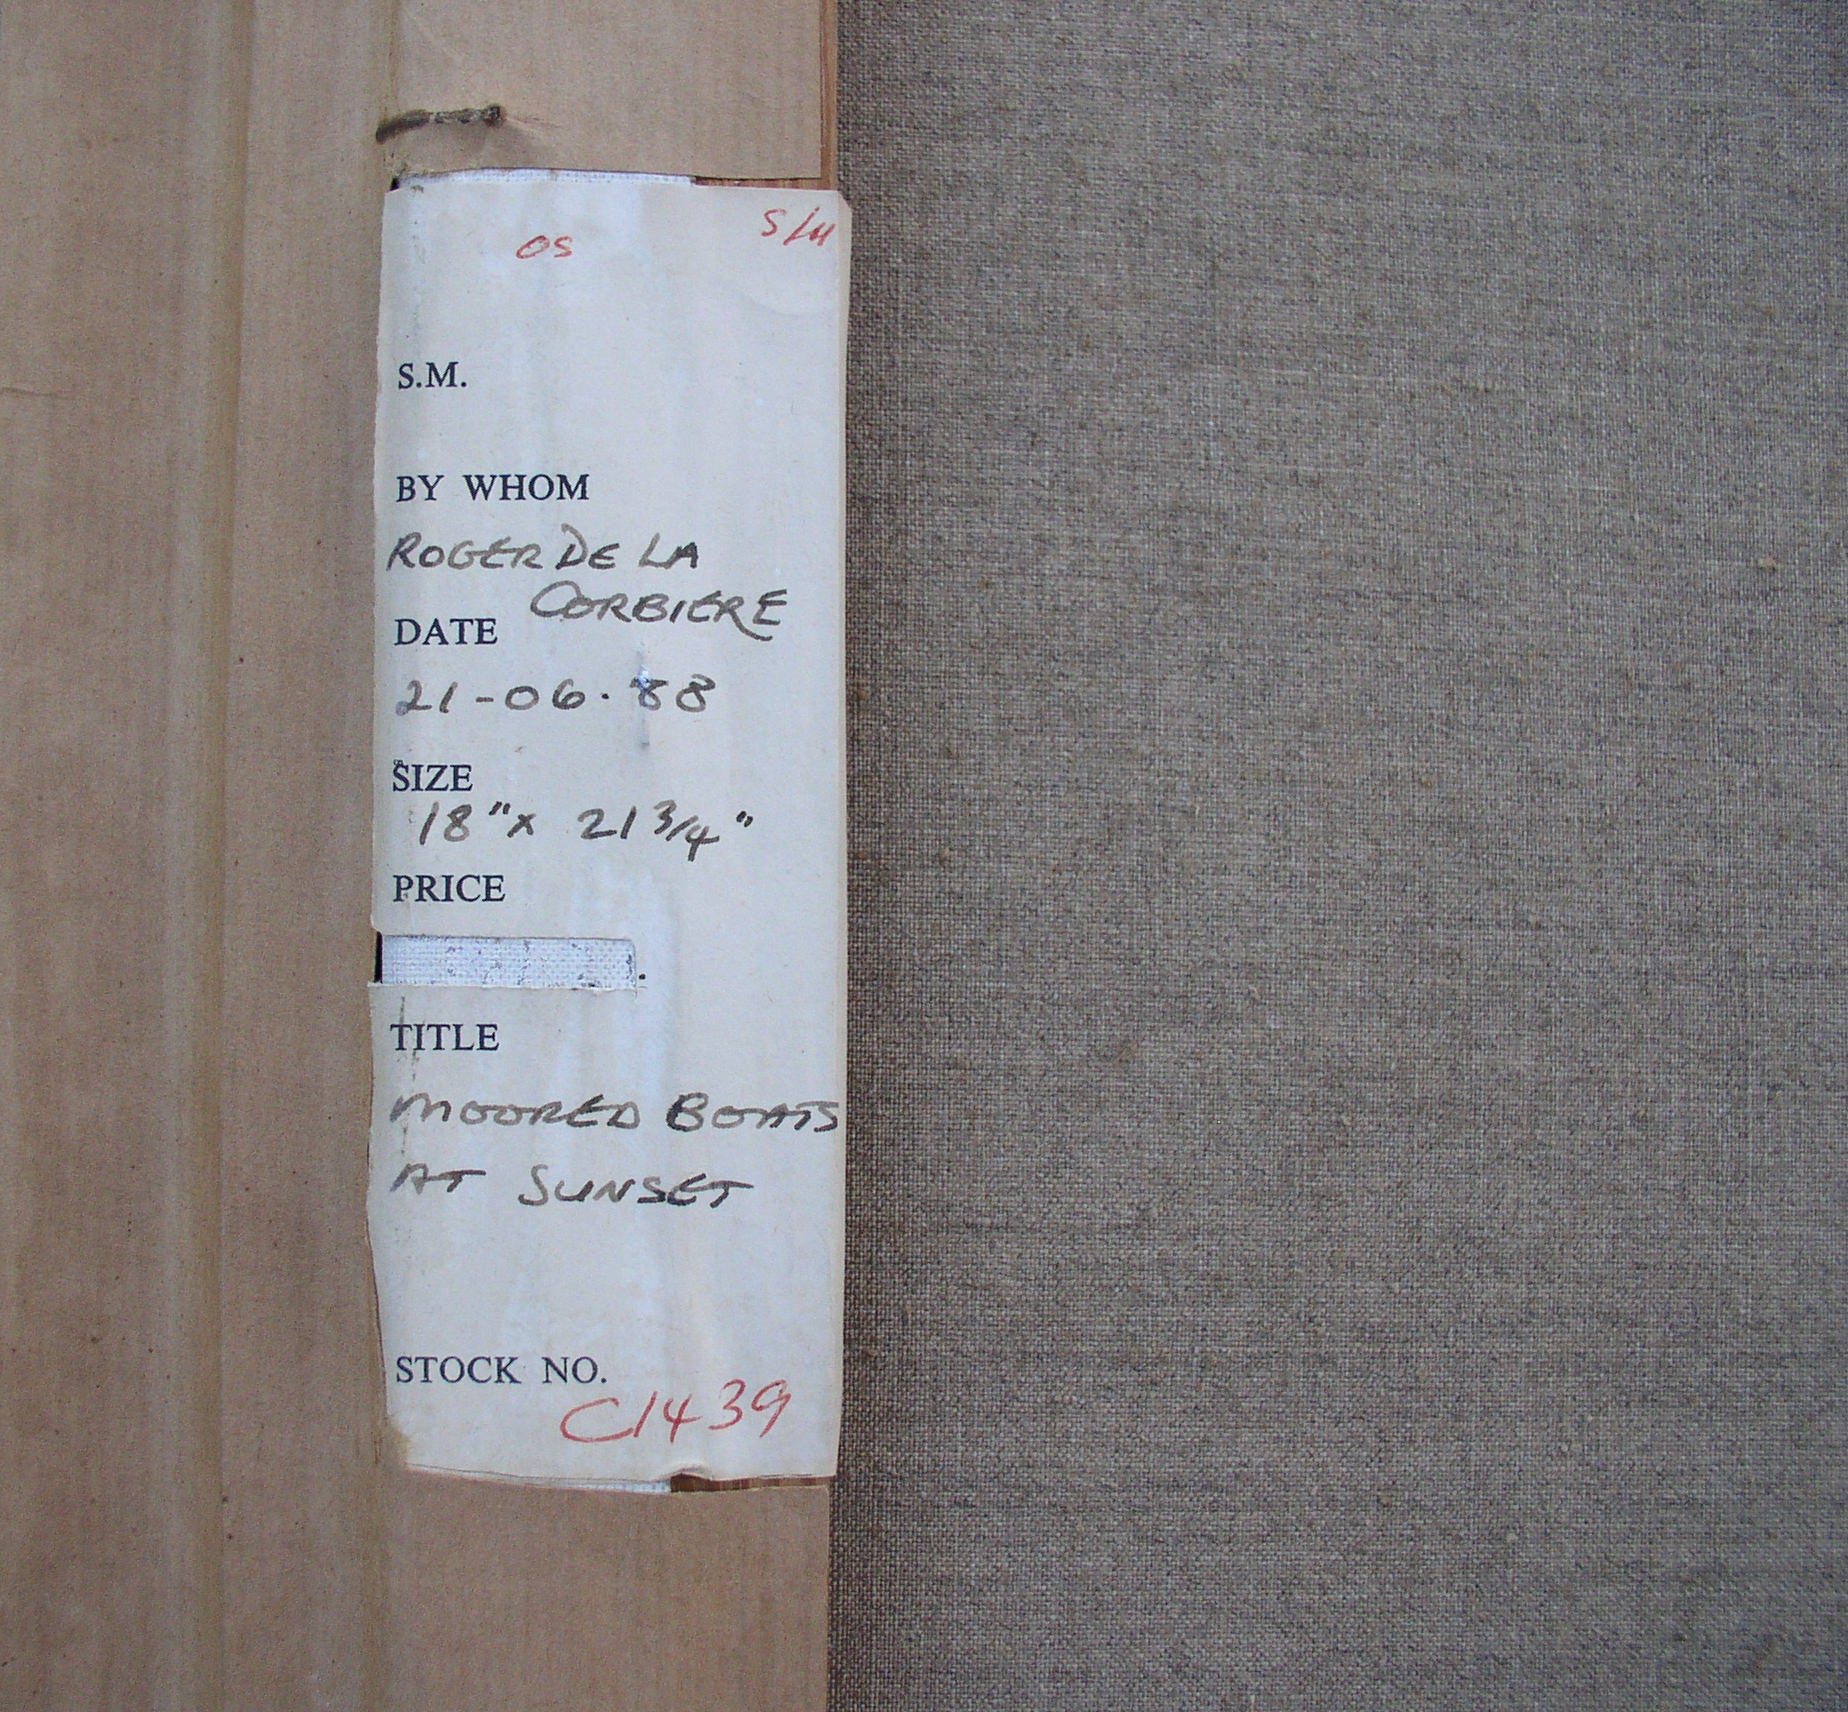 OS
S.M.
BY WHOM
ROGER DE LA
CORBIERE
DATE
21-06.88
SIZE
18" x 21 3/4"
PRICE
TITLE
MOORED BOATS
AT SUNSET
STOCK NO.
C1439